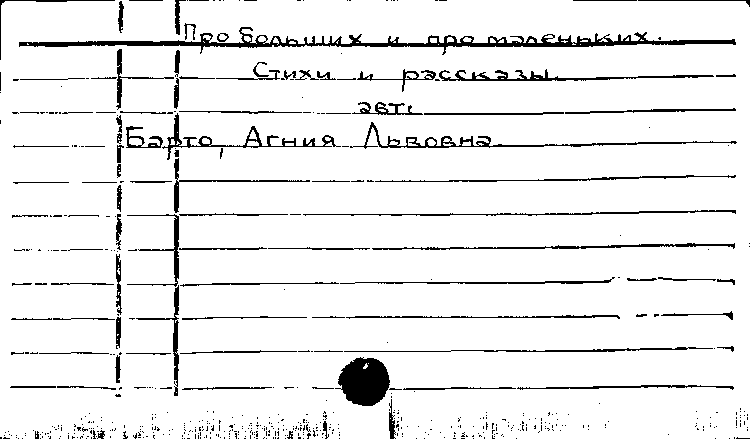 Про больших и про маленьких.
Стихи и рассказы.
авт.
Барто, Агния Львовна.